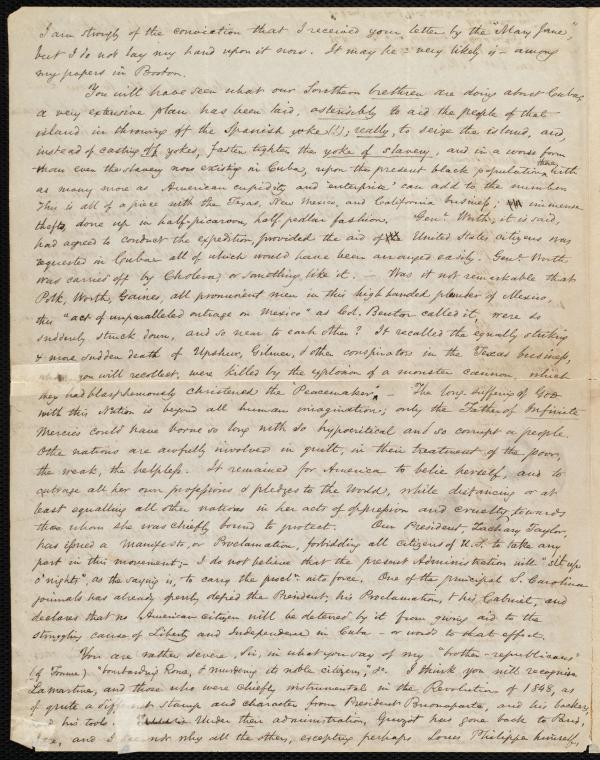 I am strongly of the conviction that I received your letter by the "Mary Jane",
but I do not lay my hand upon it now. It may be - very likely is - among
my papers in Boston.
You will have seen what our Southern brethren are doing about Cuba;
a very extensive plan has been laid, ostensibly to aid the people of that
island in throwing off the Spanish yoke (!); really, to seize the island, and,
instead of casting off yokes, fasten tighten the yoke of slavery, and in a worse form
than even the slavery now existing in Cuba, upon the present black population there, with
as many more as American cupidity and 'enterprise' can add to the number.
This is all of a piece with the Texas, New Mexico, and California business; immense
thefts, done up in half-picaroon, half pedlar fashion. Genl. Worth, it is said,
had agreed to conduct the expedition, provided the aid of United States citizens was
requested in Cuba - all of which would have been arranged easily. Genl. Worth
was carried off by Cholera, or something like it. - Was it not remarkable that
Polk, Worth, Gaines, all prominent men in this highhanded plunder of Mexico,
this "act of unparalleled outrage on Mexico" as Col. Benton called it, were so
suddenly struck down, and so near to each other? It recalled the equally striking
& more sudden death of Upshur, Gilmer, & other conspirators in the Texas business,
you will recollect, were killed by the explosion of a monster cannon, which
they had blasphemously christened the Peacemaker". - The long suffering of God
with this Nation is beyond all human imagination; only the Father of Infinite
Mercies could have borne so long with so hypocritical and so corrupt a people.
Othe nations are awfully involved in guilt, in their treatment of the poor,
the weak, the helpless. It remained for America to belie herself, and to
outrage all her own professions & pledges to the World, while distancing or at
least equalling all other nations in her acts of oppression and cruelty towards
those whom she was chiefly bound to protect. Our President, Zachary Taylor,
has issued a Manifesto, or Proclamation, forbidding all citizens of U.S. to take any
part in this movement; - I do not believe that the present Administration will "sit up
o'nights", as the saying is, to carry the procl. into force. One of the principal S. Carolina
journals has already openly defied the President, his Proclamation, & his Cabinet, and
declares that no American citizen will be deterred by it from giving aid to the
struggling cause of Liberty and Independence in Cuba - or words to that effect.
You are rather severe, Sir, in what you say of my "brother-republicans"
(of France) "bombarding Rome, & murdering its noble citizens," &c. I think you will recognise
Lamartine, and those who were chiefly instrumental in the Revolution of 1848, as
of quite a different stamp and character from President Buonaparte, and his backers,
and his tools. Under their administration, Guizot has gone back to Paris,
and I see not why all the others, excepting perhaps Louis Philippe himself,